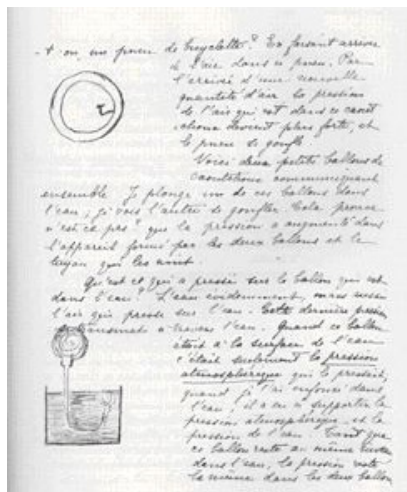 -t-on un pneu de bicyclette? En faisant arriver
de l'air dans ce pneu. Par
l'arrivée d'une nouvelle
quantité d'air la pression
de l'air qui est dans ce caout
chouc devient plus forte, et
le pneu se gonfle
Voici deux petits ballons de
caoutchouc communiquant
ensemble Je plonge un de ces ballons dans
l'eau, je vois l'autre se gonfler. Cela prouve
n'est ce pas? que la pression a augmenté dans
l'appareil formé par les deux ballons et le
tuyau qui les unit.
Qu'est ce qui a pressé sur le ballon qui est
dans l'eau? L'eau évidemment, mais aussi
l'air qui presse sur l'eau. Cette dernière pression
se transmet à travers l'eau. Quand ce ballon
était à la surface de l'eau
c'était seulement la pression
atmosphérique qui le pressait,
quand je l'ai enfoncé dans
l'eau, il a eu à supporter la
pression atmosphérique et la
pression de l'eau. Tant que
ce ballon reste au même niveau
dans l'eau, la pression reste
la même dans les deux ballons